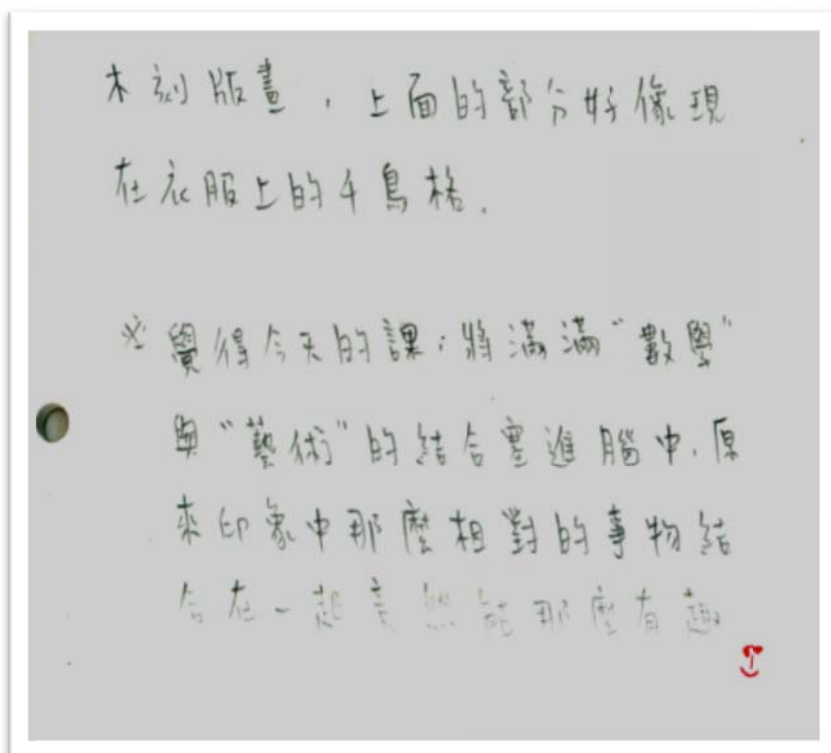 木刻版畫，上面的部分好像現
在衣服上的千鳥格.
※ 覺得今天的課，將滿滿"數學"
與"藝術"的結合塞進腦中.原
來印象中那麼相對的事物結
合在一起竟然能那麼有趣